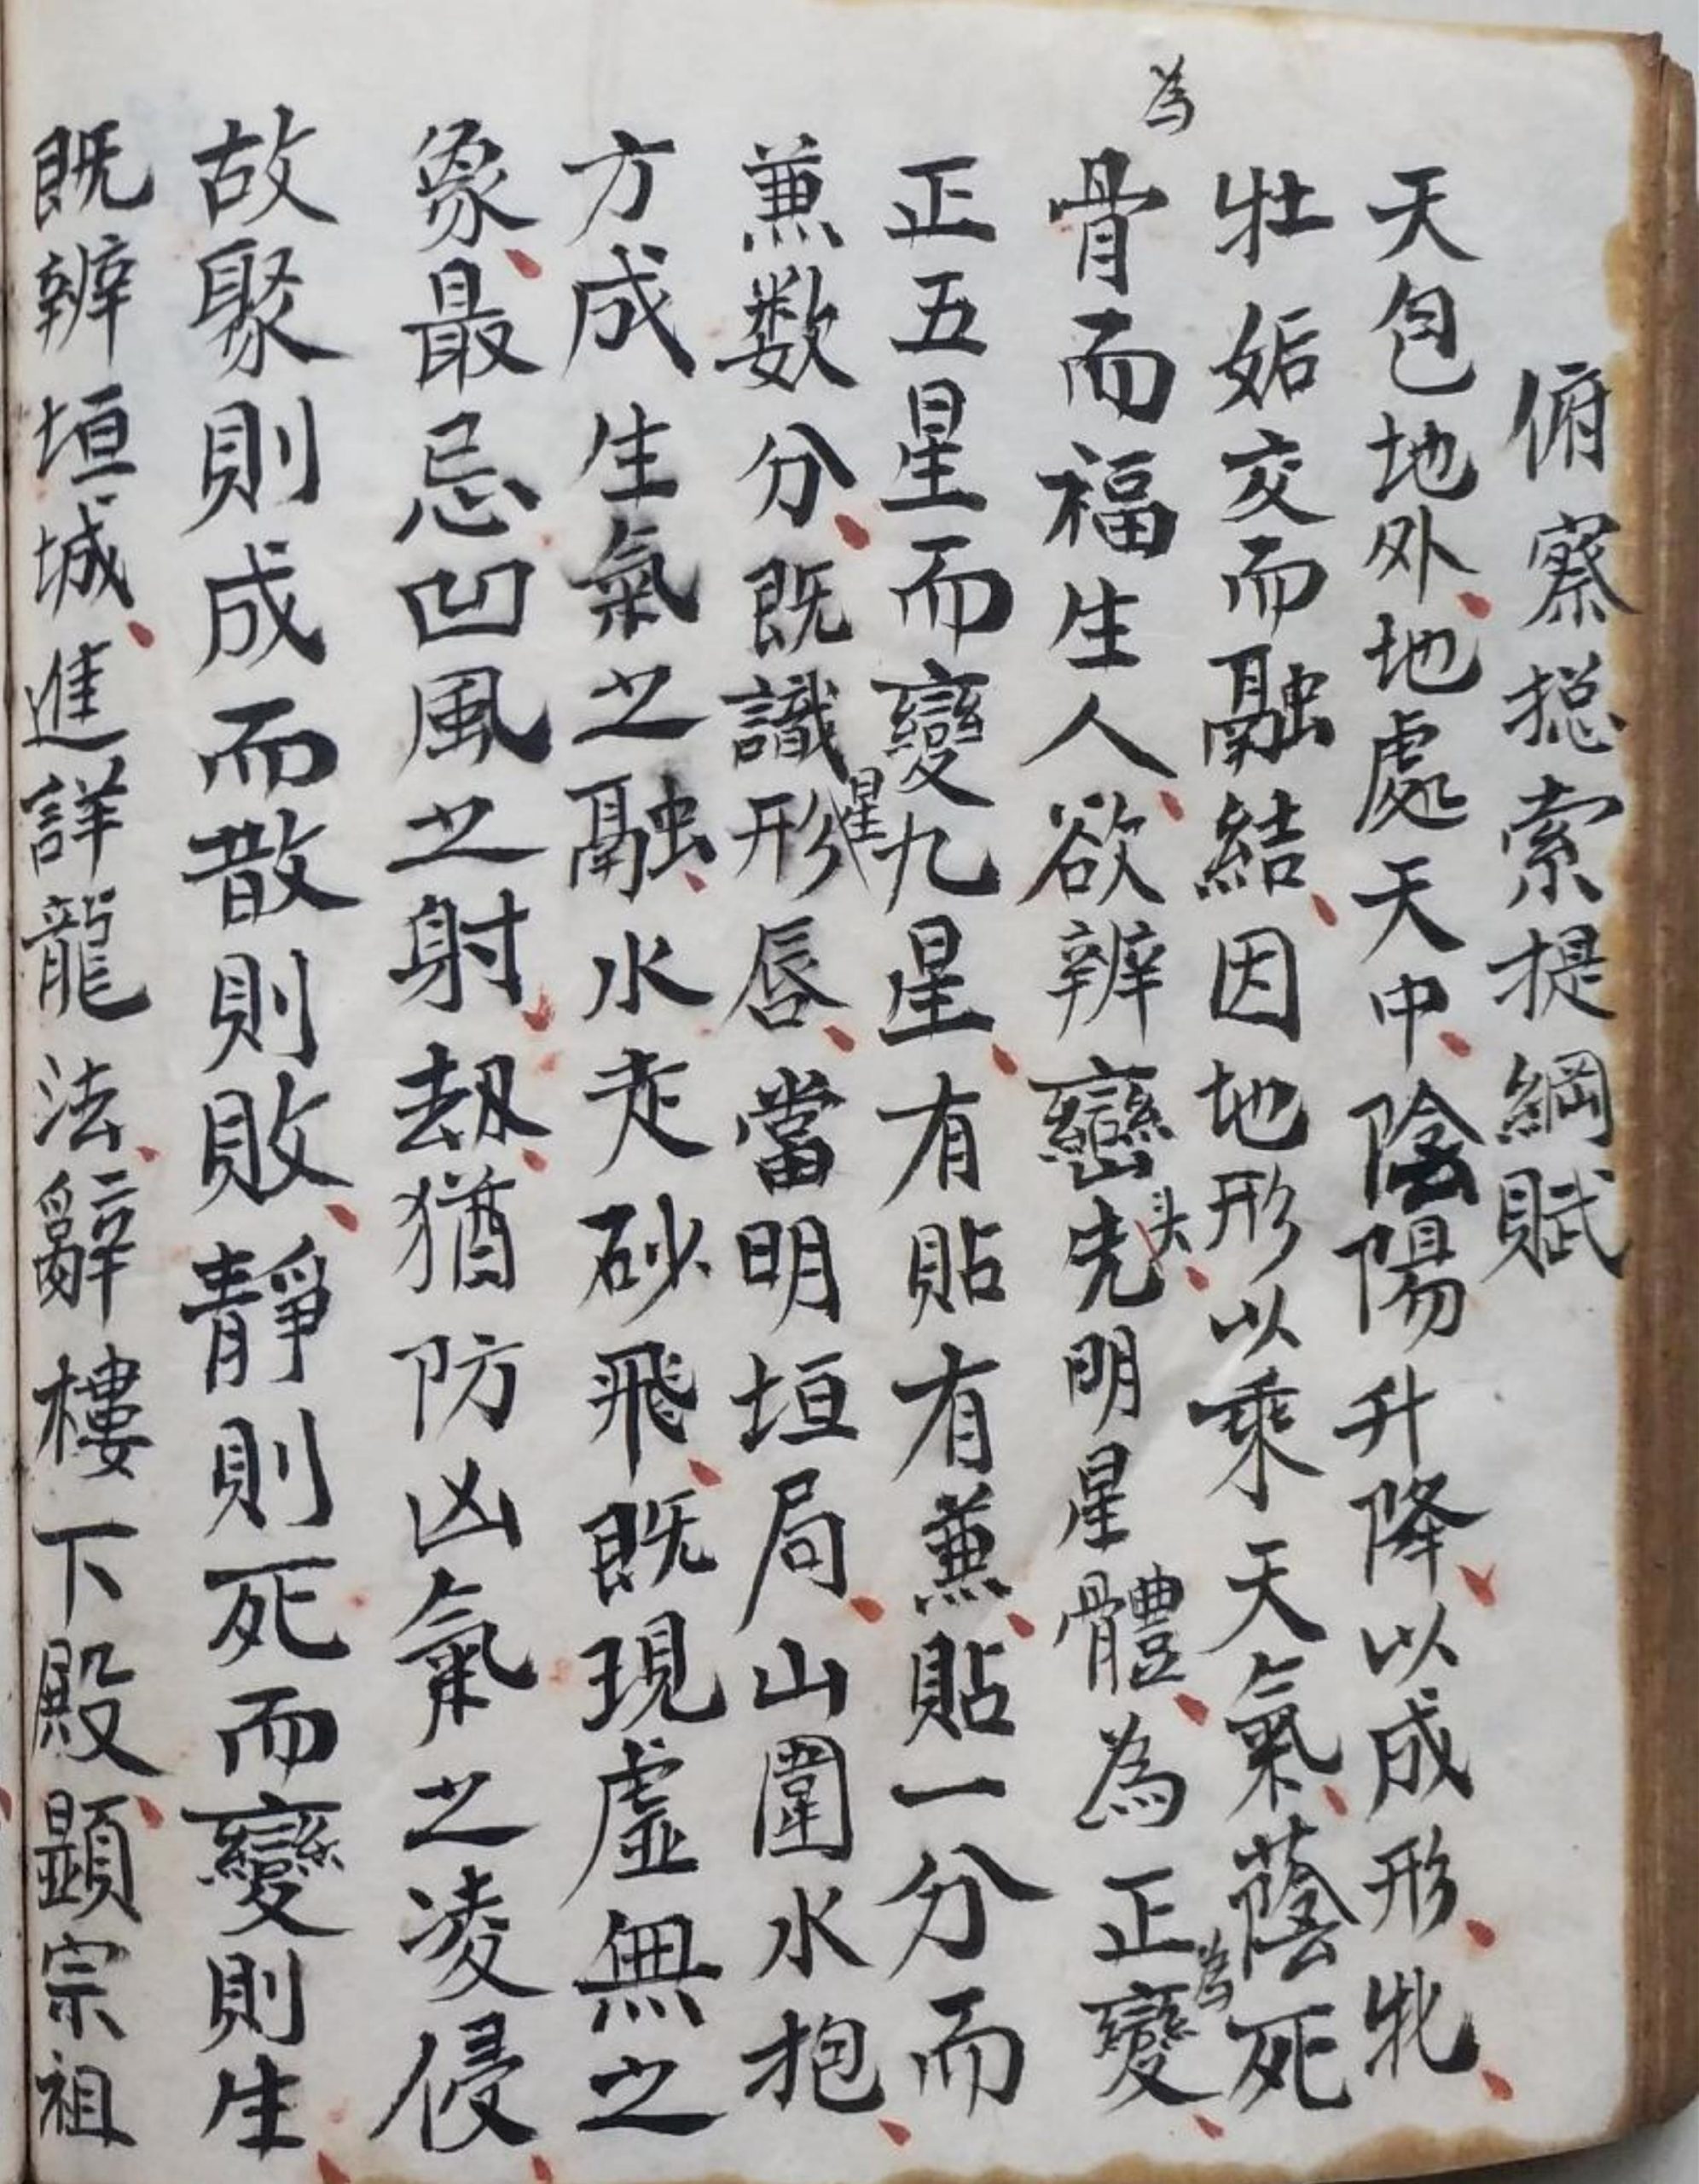 俯察捴索提綱賦
天包地外、地處天中、陰陽升降、以成形、牝、
牡姤交而融結、因地形以乘天氣、蔭死
為
骨而福生人、欲辨巒头、先明星體、為正為變、
正五星而變九星、有貼有兼、貼一分而
兼数分、既識形星唇、當明垣局、山圍水抱、
方成生氣之融、水走砂飛、既現虛無之
象、最忌凹風之射、刼、猶防凶氣之凌侵、
故聚則成而散則敗、靜則死而變則生、
既辨垣城、進詳龍法、辭樓下殿、顕宗祖